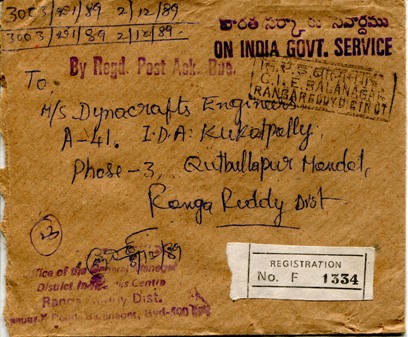 3003/291/89 2/12/89
3003/291/89 2/12/89
భారత సర్కారు సేవార్థము
ON INDIA GOVT. SERVICE
By Regd. Post Ack. Due.
C.I.E. BALANAGAR
RANGAREDDY DISTRICT
To,
M/S Dynacrafts Engineers
A-41. I.D.A: Kukatpally,
Phase-3, Quthullapur Mandal,
Ranga Reddy Dist
23
/12/89
Office of the General Manager
District Industries Centre
Ranga Reddy Dist.
Balanagar, Hyd-500
REGISTRATION
No. F 1334